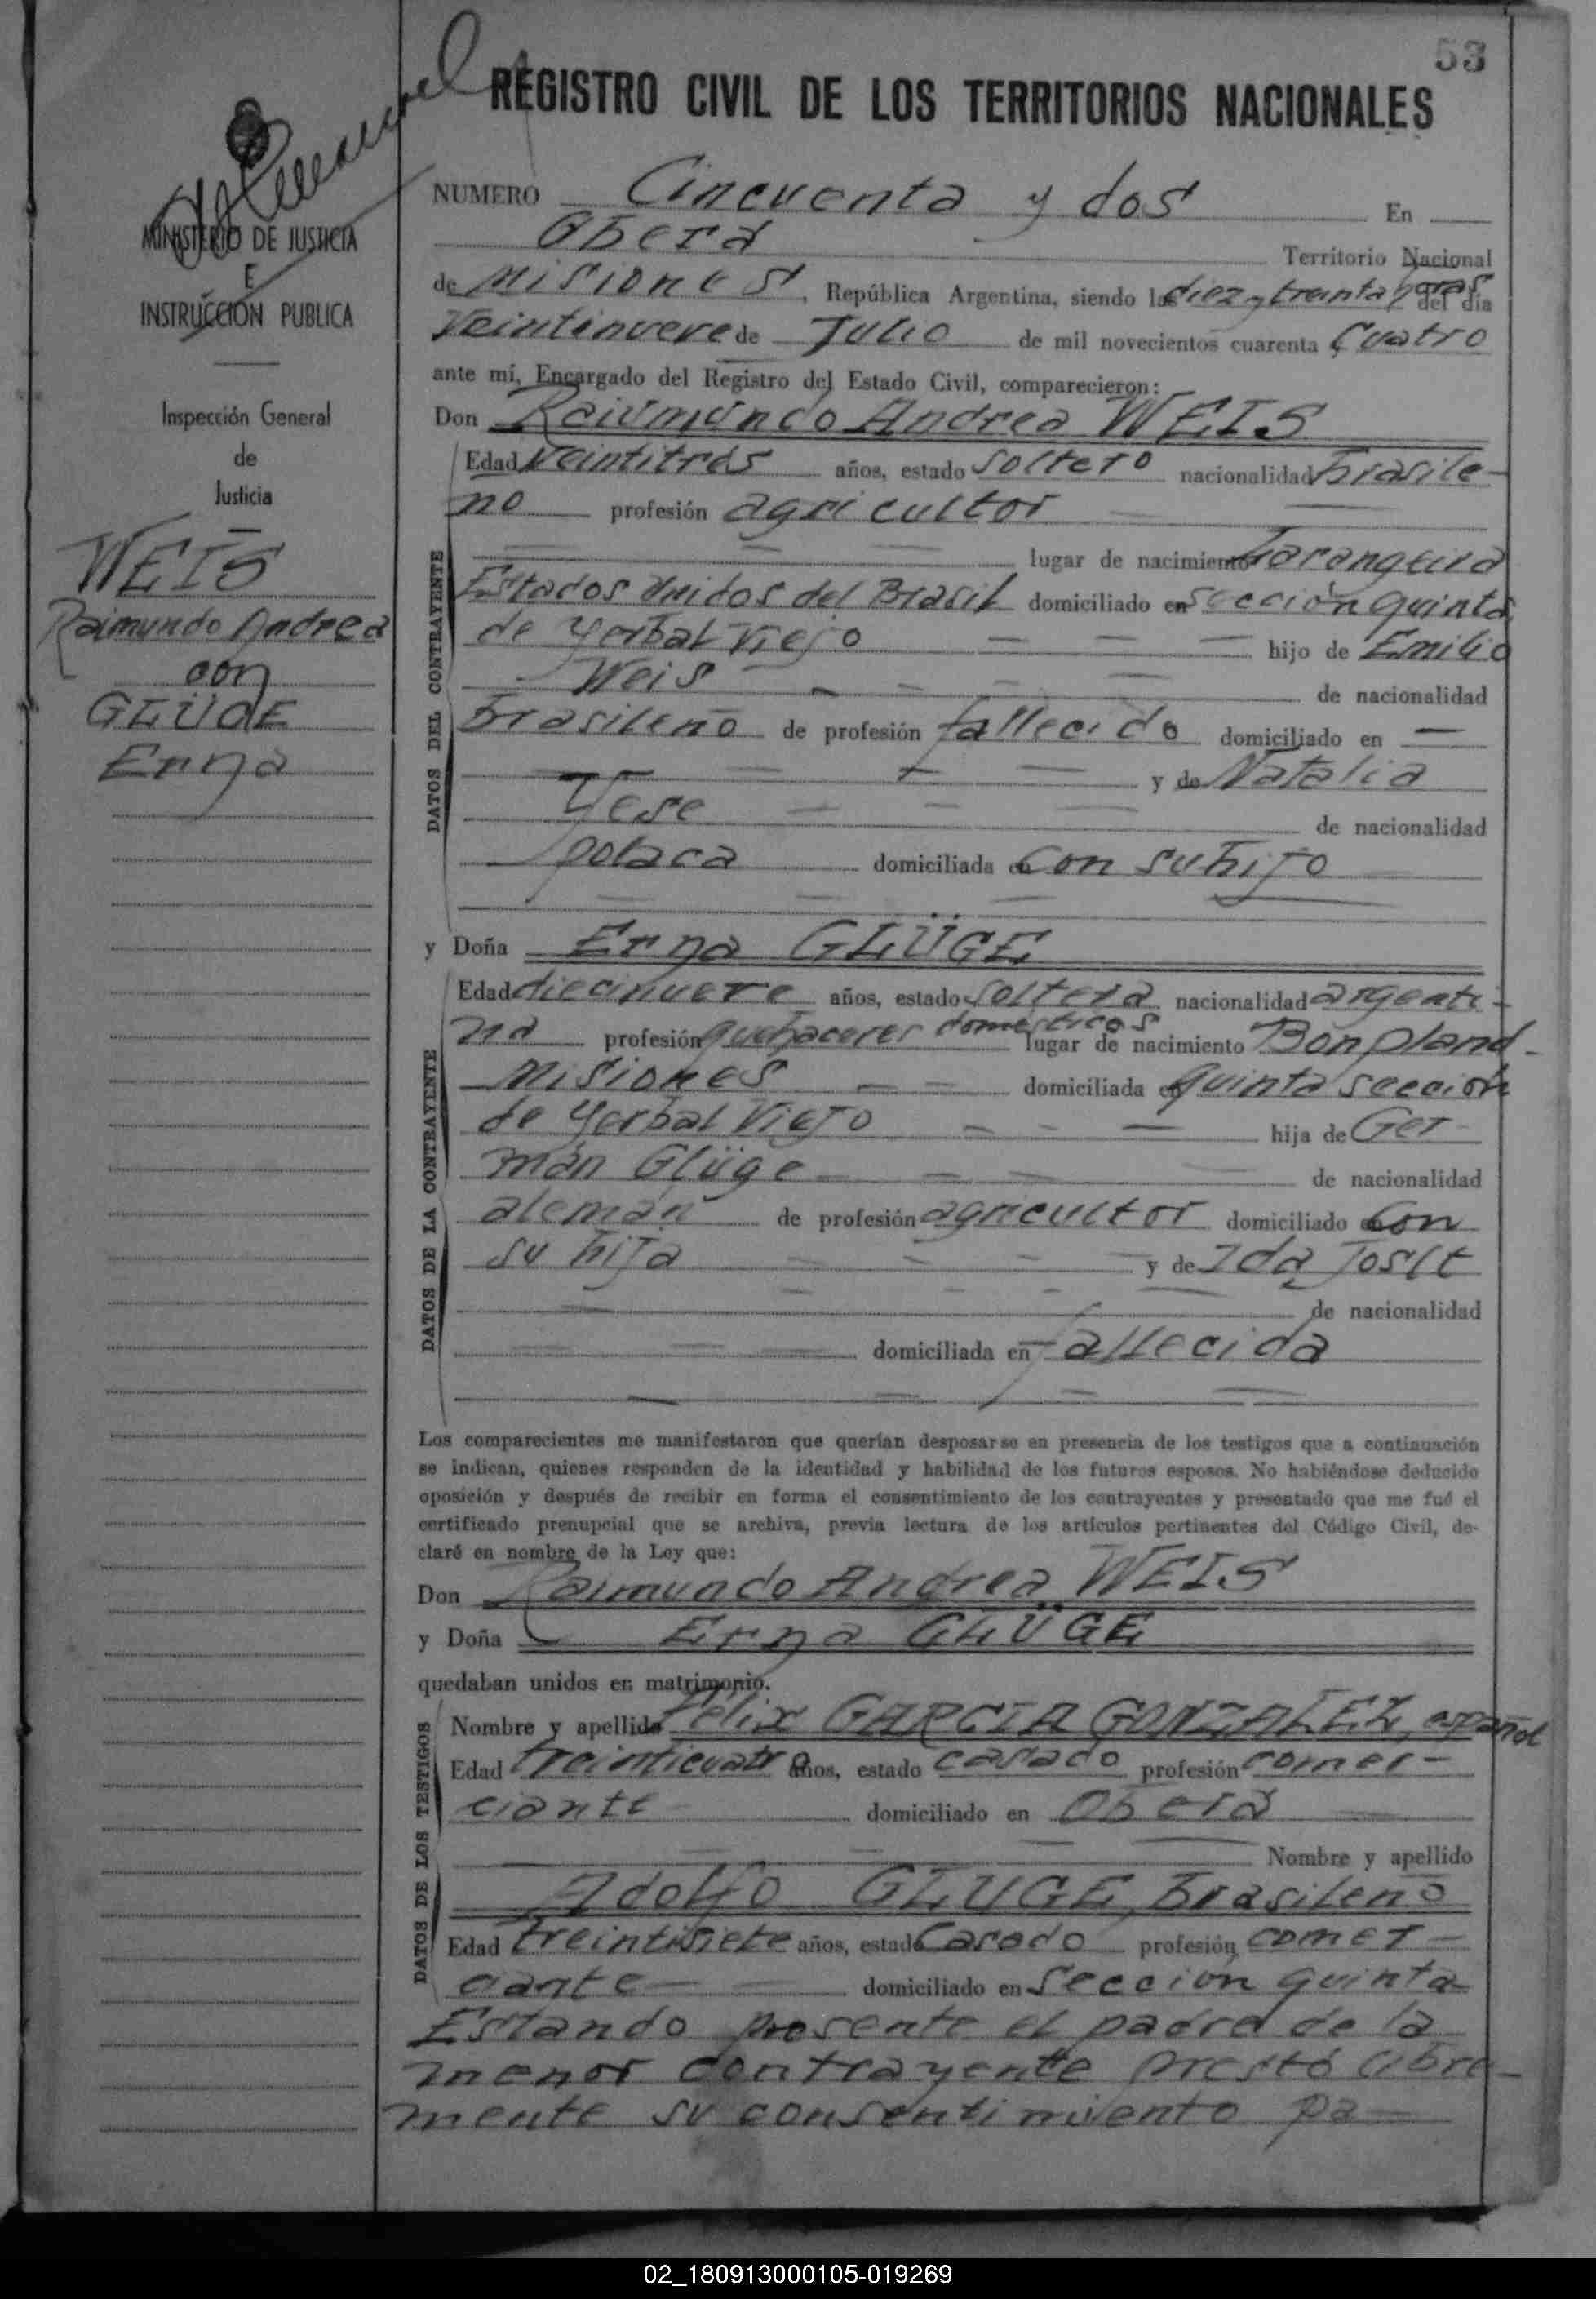 53
REGISTRO CIVIL DE LOS TERRITORIOS NACIONALES
MINISTERIO DE JUSTICIA
E
INSTRUCCIÓN PUBLICA
Inspección General
de
Justicia
WEIS
Raimundo Andrea
con
GLÜGE
Erna
NUMERO Cincuenta y dos En
Oberá Territorio Nacional
de Misiones, República Argentina, siendo las diez y treinta horas del día
Veintinueve de Julio de mil novecientos cuarenta cuatro
ante mí, Encargado del Registro del Estado Civil, comparecieron:
Don Raimundo Andrea WEIS
DATOS DEL CONTRAYENTE
Edad Veintitrés años, estado soltero nacionalidad brasile-
ño profesión agricultor
lugar de nacimiento Larangeira
Estados Unidos del Brasil domiciliado en sección quinta
de Yerbal Viejo hijo de Emilio
Weis de nacionalidad
brasileño de profesión fallecido domiciliado en
y de Natalia
Yese de nacionalidad
polaca domiciliada en con su hijo
y Doña Erna GLÜGE
DATOS DE LA CONTRAYENTE
Edad diecinueve años, estado soltera nacionalidad argenti-
na profesión quehaceres domésticos lugar de nacimiento Bonpland-
Misiones domiciliada en quinta sección
de Yerbal Viejo hija de Ger-
mán Glüge de nacionalidad
alemán de profesión agricultor domiciliado con
su hija y de Ida
de nacionalidad
domiciliada en fallecida
Los comparecientes me manifestaron que querían desposarse en presencia de los testigos que a continuación
se indican, quienes responden de la identidad y habilidad de los futuros esposos. No habiéndose deducido
oposición y después de recibir en forma el consentimiento de los contrayentes y presentado que me fué el
certificado prenupcial que se archiva, previa lectura de los artículos pertinentes del Código Civil, de-
claré en nombre de la Ley que:
Don Raimundo Andrea WEIS
y Doña Erna GLÜGE
quedaban unidos en matrimonio.
DATOS DE LOS TESTIGOS
Nombre y apellido Félix GARCIA GONZALEZ, español
Edad treinticuatro años, estado casado profesión comer-
ciante domiciliado en Oberá
Nombre y apellido
Adolfo GLUGE, brasileño
Edad treintisiete años, estado casado profesión comer-
ciante domiciliado en sección quinta
Estando presente el padre de la
menor contrayente prestó libre-
mente su consentimiento pa-
02_180913000105-019269